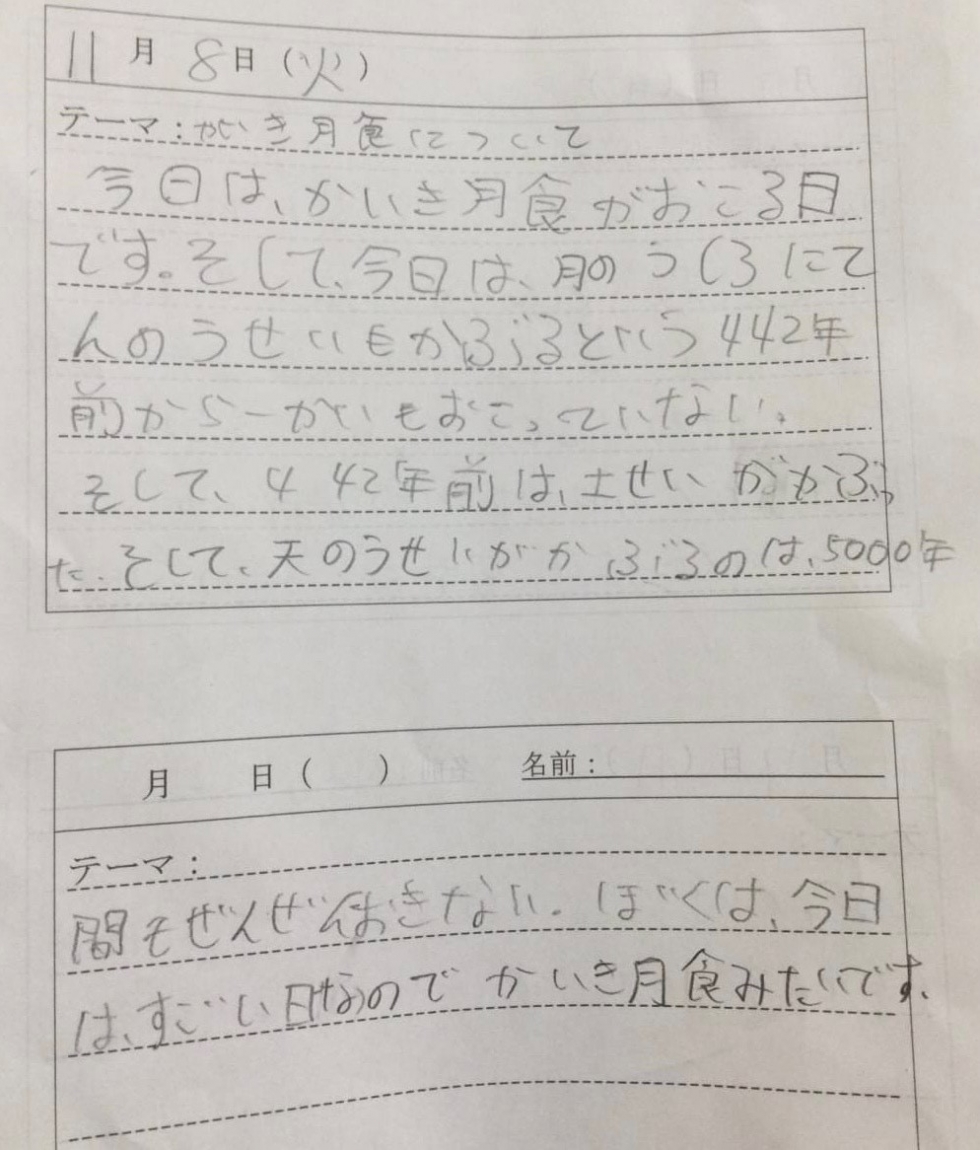 11月8日(火)
テーマ:かいき月食について
今日は、かいき月食がおこる日
です。そして、今日は、月のうしろにて
んのうせいもかぶるという442年
前から一かいもおこっていない。
そして、442年前は、土せいがかぶっ
た。そして、天のうせいがかぶるのは、5000年
月 日( ) 名前:
テーマ:
間もぜんぜんおきない。ぼくは、今日
は、すごい日なのでかいき月食みたいです。